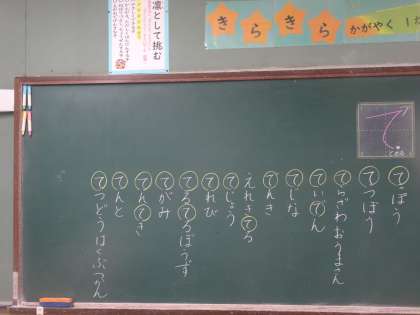 凛として挑む
きらきら かがやく 1
て
てほう
てつぼう
てらざわおうすけさん
ていでん
てじな
てんき
えれきてる
てじょう
てれび
てるてるぼうず
てがみ
てんてき
てんと
てつどうはくぶつかん